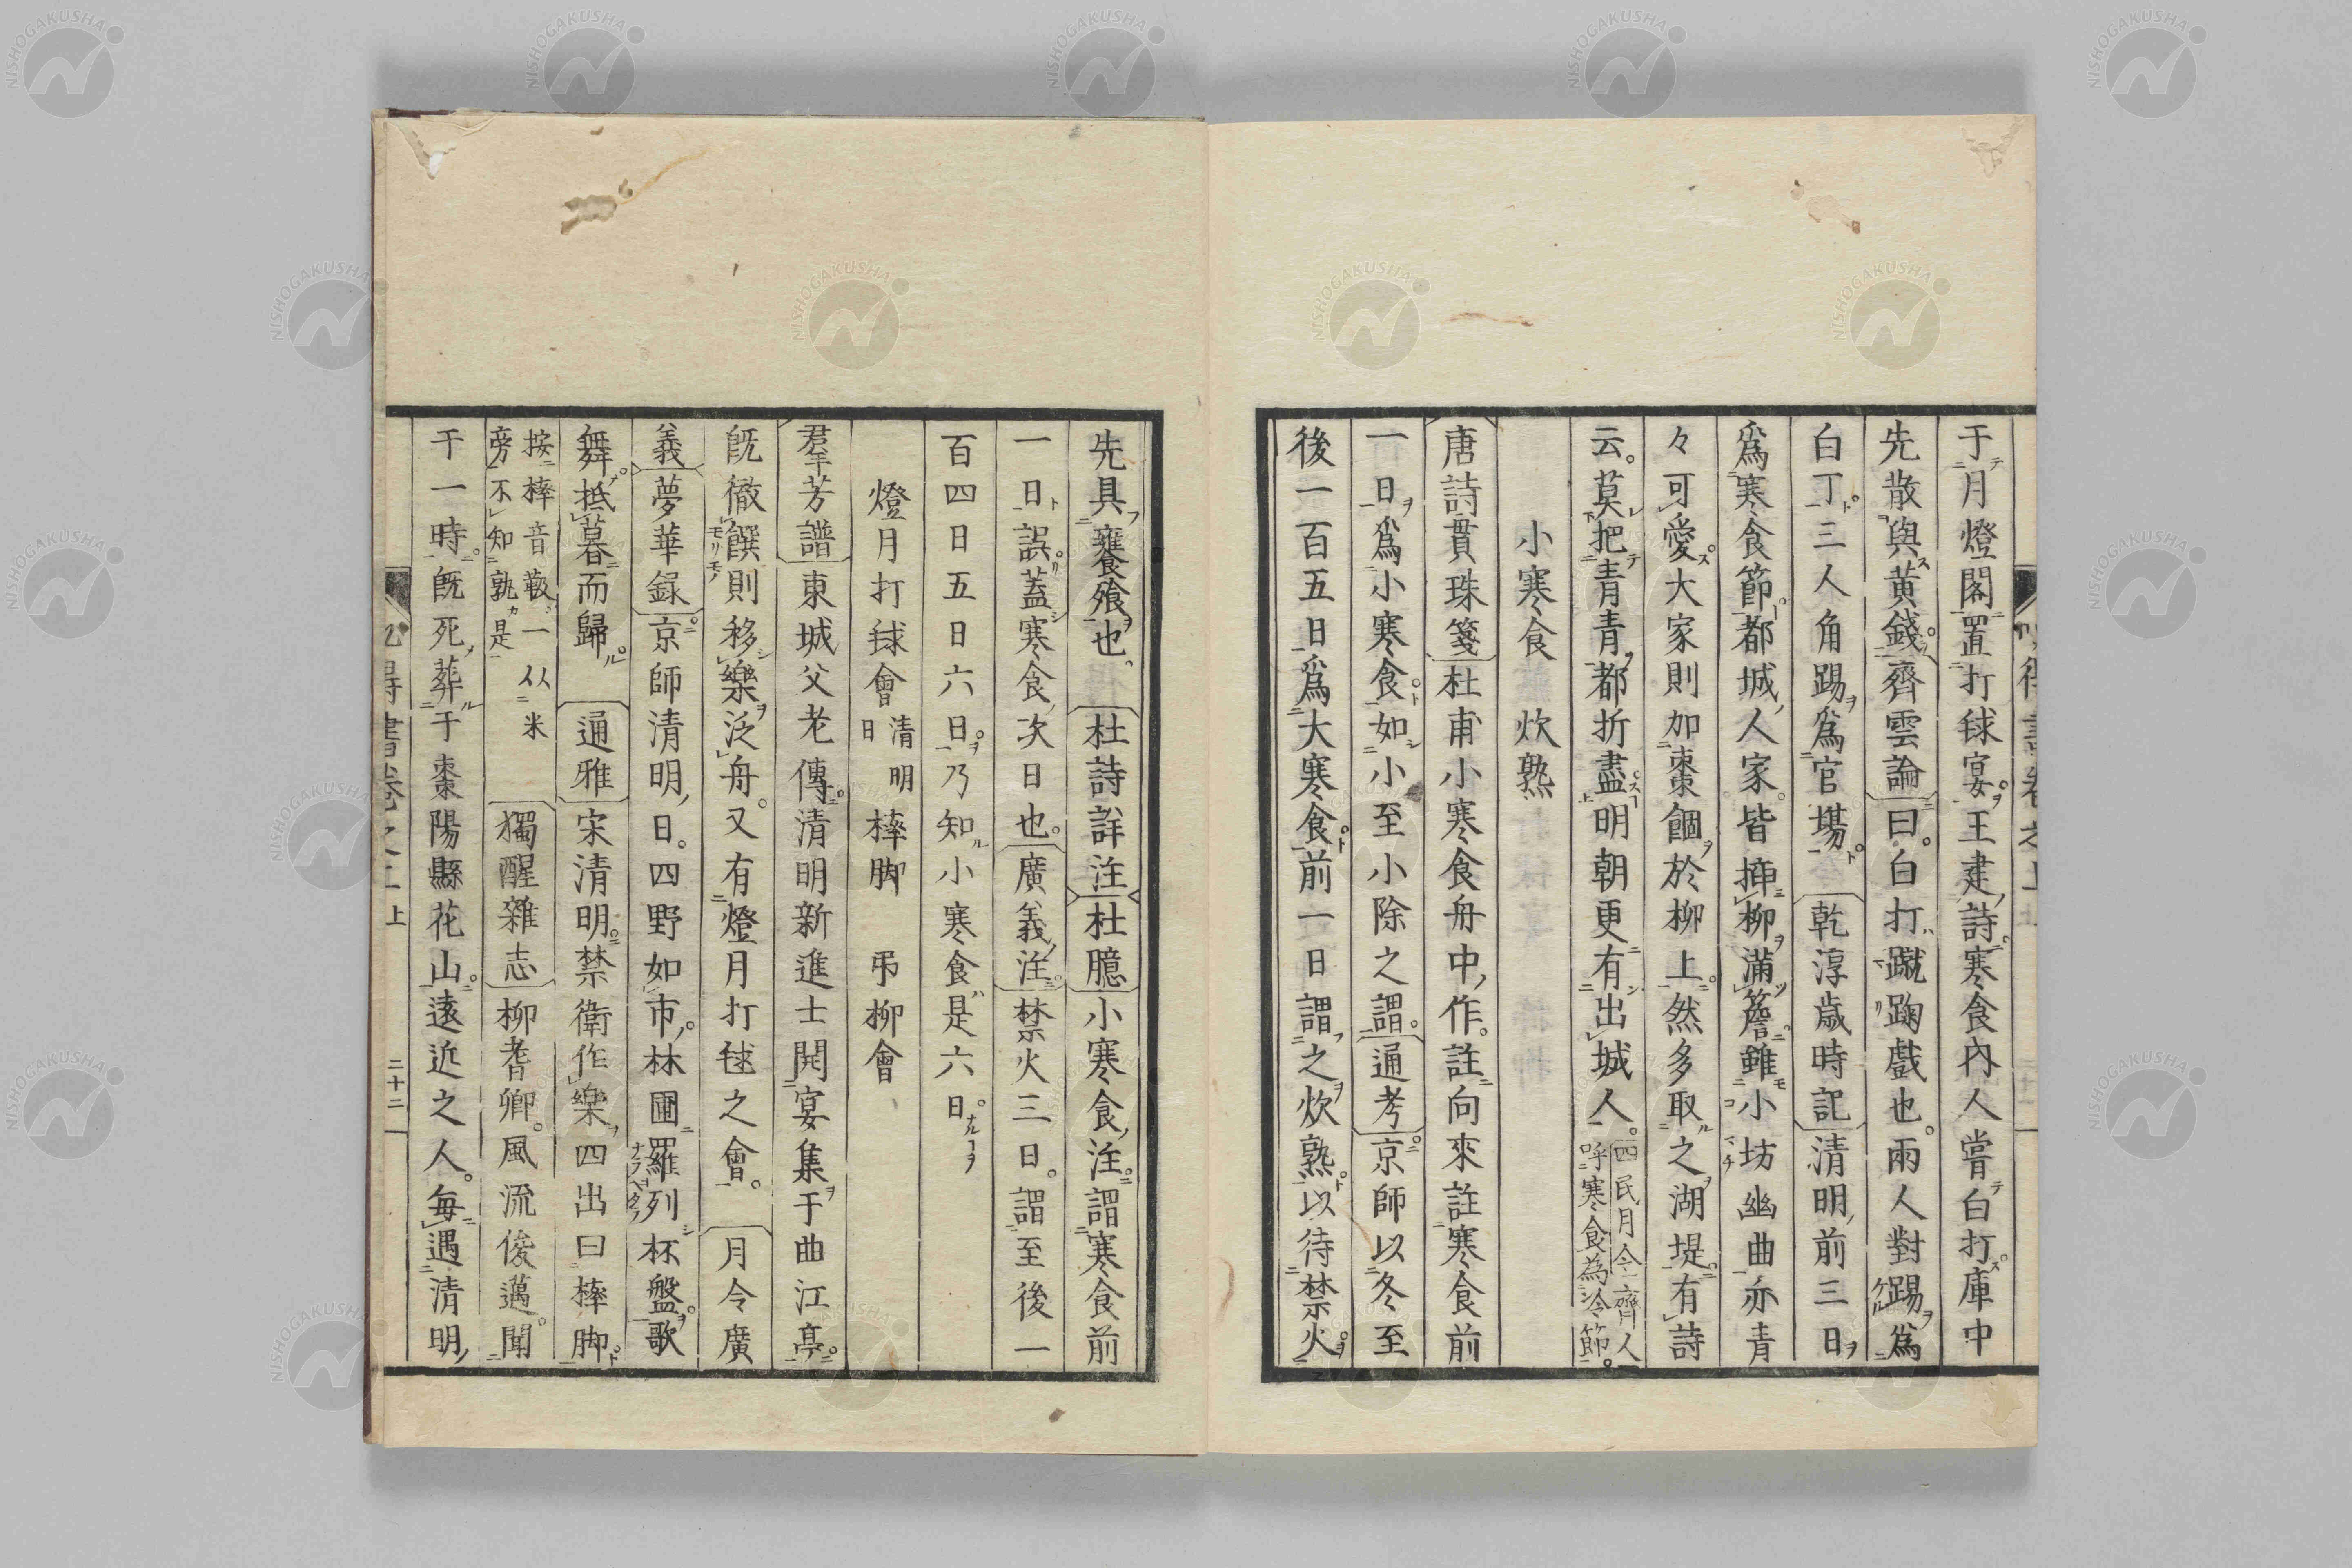 于月燈閣置打毬宴王建詩寒食內人嘗白打庫中
先散與黃錢齊雲論曰白打蹴踘戲也兩人對踢爲
白丁三人角踢爲官場乾淳歲時記清明前三日
爲寒食節都城人家皆插柳滿簷雖小坊幽曲亦青
々可愛大家則加棗䭅於柳上然多取之湖堤有詩
云莫把青青都折盡明朝更有出城人四民月令齊人呼寒食為冷節
小寒食 炊熟
唐詩貫珠箋杜甫小寒食舟中作註向來註寒食前
一日爲小寒食如小至小除之謂通考京師以冬至
後一百五日爲大寒食前一日謂之炊熟以待禁火
先具饔飧也杜詩詳注杜臆小寒食注謂寒食前
一日誤蓋寒食次日也廣義注禁火三日謂至後一
百四日五日六日乃知小寒食是六日
燈月打毬會清明日 㮣脚 弔柳會
羣芳譜東城父老傳清明新進士開宴集于曲江亭
既徹饌則移樂泛舟又有燈月打毬之會月令廣
義夢華錄京師清明日四野如市林圃羅列杯盤歌
舞抵暮而歸通雅宋清明禁衛作樂四出曰㮣脚
獨醒雜志柳耆卿風流俊邁聞
于一時既死葬于棗陽縣花山遠近之人每遇清明
上
二十二